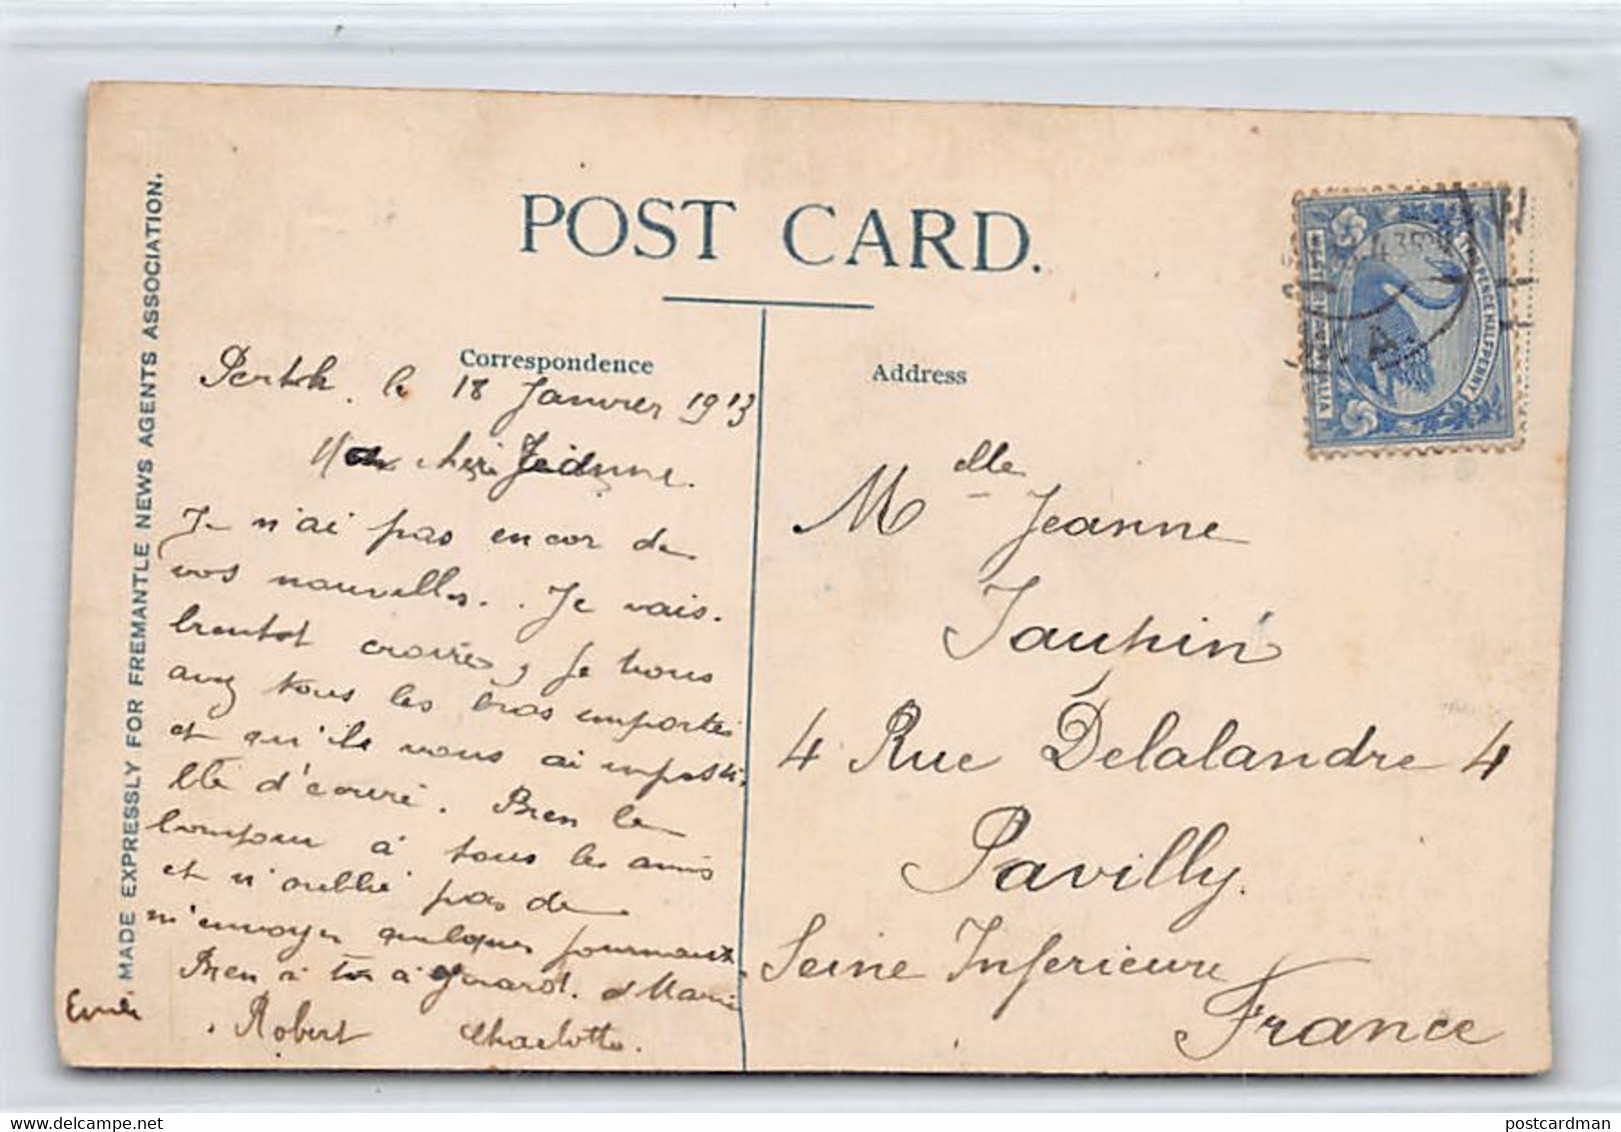 POST CARD.
MADE EXPRESSLY FOR FREMANTLE NEWS AGENTS ASSOCIATION.
Correspondence
Address
Perth. le 18 Janvier 1913
Ma chère Jeanne.
Je n'ai pas encor de
vos nouvelles. Je vais.
bientot croire, je vous
avez tous les bras emportés
et qu'ils vous ai impossi
ble d'écrire. Bien le
bonjour à tous les amis
et n'oublié pas de
m'envoyer quelques journaux
Bien à toi à Gerard. Marie
Robert Charlotte.
Emile
Melle Jeanne
Taupin
4 Rue Delalandre 4
Pavilly.
Seine Inferieure
France
WESTERN AUSTRALIA
TWO PENCE HALFPENNY
postcardman